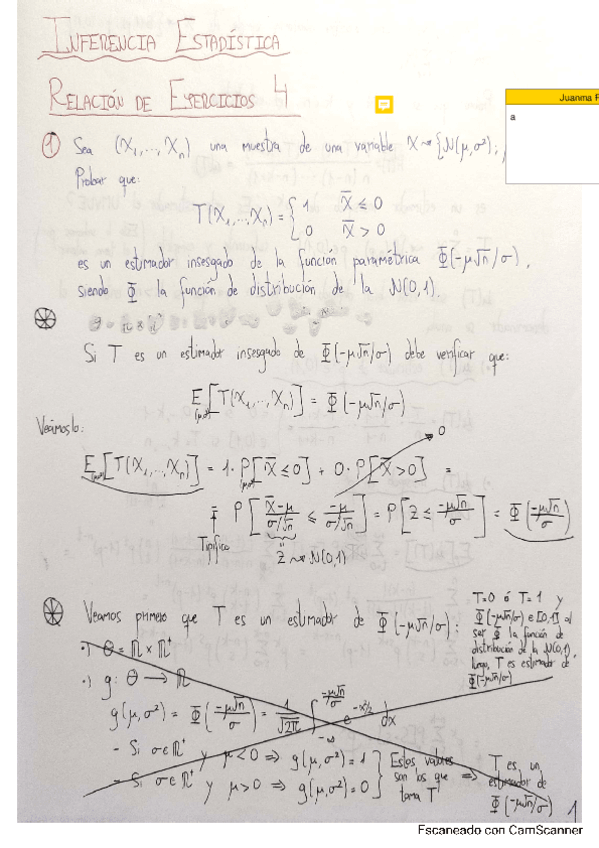 INFERENCIA ESTADÍSTICA
RELACIÓN DE EJERCICIOS 4
Juanma F
a
① Sea (X₁,...,Xₙ) una muestra de una variable X ⇝ {N(μ,σ²);
Probar que:
T(X₁,...,Xₙ) = { 1 X̄ ≤ 0
0 X̄ > 0
es un estimador insesgado de la función paramétrica Φ(-μ√n/σ),
siendo Φ la función de distribución de la N(0,1).
Si T es un estimador insesgado de Φ(-μ√n/σ) debe verificar que:
E(μ,σ²)[T(X₁,...,Xₙ)] = Φ(-μ√n/σ)
Veámoslo:
E(μ,σ²)[T(X₁,...,Xₙ)] = 1·P(μ,σ²)[X̄ ≤ 0] + 0·P[X̄ > 0] =
0
= P[(X̄-μ)/(σ/√n) ≤ -μ/(σ/√n)] = P[Z ≤ -μ√n/σ] = Φ(-μ√n/σ)
Tipifico
Z ⇝ N(0,1)
Veamos primero que T es un estimador de Φ(-μ√n/σ):
T=0 ó T=1 y
Φ(-μ√n/σ) ∈ [0,1] al
ser Φ la función de
distribución de la N(0,1),
luego, T es estimador de
Φ(-μ√n/σ)
·) Θ = ℝ × ℝ⁺
·) g: Θ → ℝ
g(μ,σ²) = Φ(-μ√n/σ) = 1/√2π ∫_{-∞}^{-μ√n/σ} e^{-x²/2} dx
- Si σ∈ℝ⁺ y μ<0 ⇒ g(μ,σ²) = 1
- Si σ∈ℝ⁺ y μ>0 ⇒ g(μ,σ²) = 0
} Estos valores
son los que
toma T
⇒ T es un
estimador de
Φ(-μ√n/σ)
1
Escaneado con CamScanner